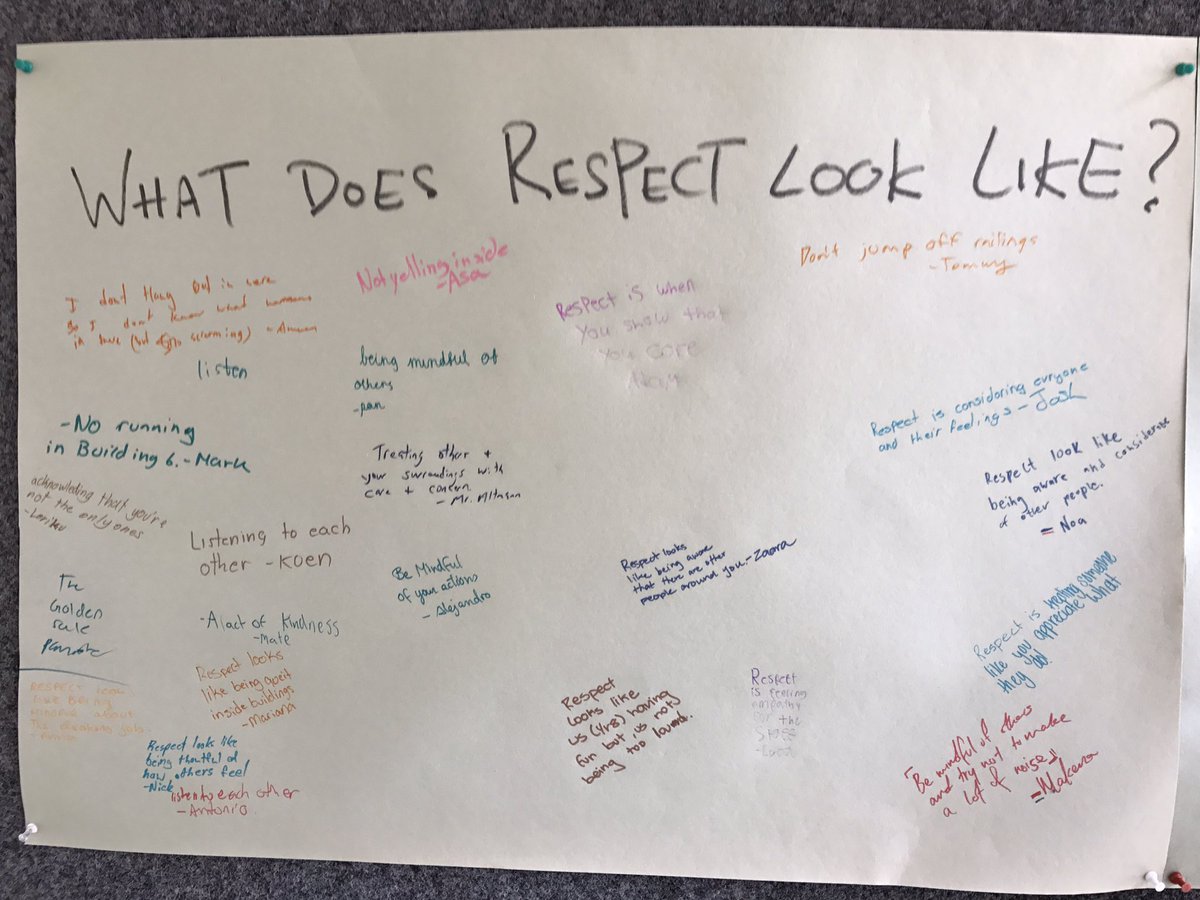 WHAT DOES RESPECT LOOK LIKE?
Not yelling inside
-Asa
Don't jump off railings
-Tommy
I don't Hang out in here
so I don't know what happens
in here (but screaming)
Respect is when
you show that
you care
listen
being mindful of
others
-No running
in Building 6.-Mark
Treating other +
your surroundings with
care + concern
Respect is considoring evryone
and their feelings - Josh
Respect look like
being aware and considerate
of other people.
- Noa
acknowleding that you're
not the only ones
Listening to each
other -Koen
Be Mindful
of your actions
- Alejandro
Respect looks
like being aware
that there are other
people around you.-Zaara
The
Golden
rule
-A lact of Kindness
-Mate
Respect is treating someone
like you appreciate what
they do!
Respect looks
like being qpeit
inside buildings
-Mariana
RESPECT LOOKS
LIKE BEING
MINDFUL ABOUT
Respect looks like
being thoutful of
how others feel
-Nick
listen to each other
-Antonio
Respect
looks like
us (4r8) having
fun but us not
being too loud.
Respect
is feeling
empathy
for the
Be mindful of others
and try not to make
a lot of noise!!
-Makena